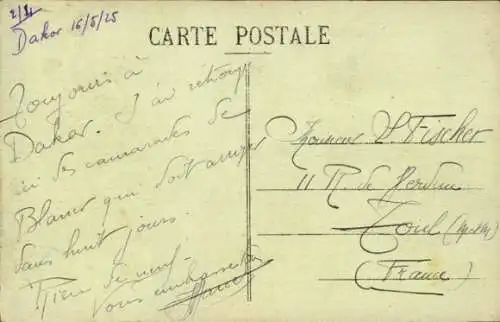 2/II
Dakar 16/5/25
CARTE POSTALE
Toujours à
Dakar. J'ai retrouvé
ici des camarades de
qui doit arriver
dans huit jours.
Rien de neuf.
Vous embrasse
Monsieur Fischer
11 R. de Verdun
Toul (M et M)
(France)